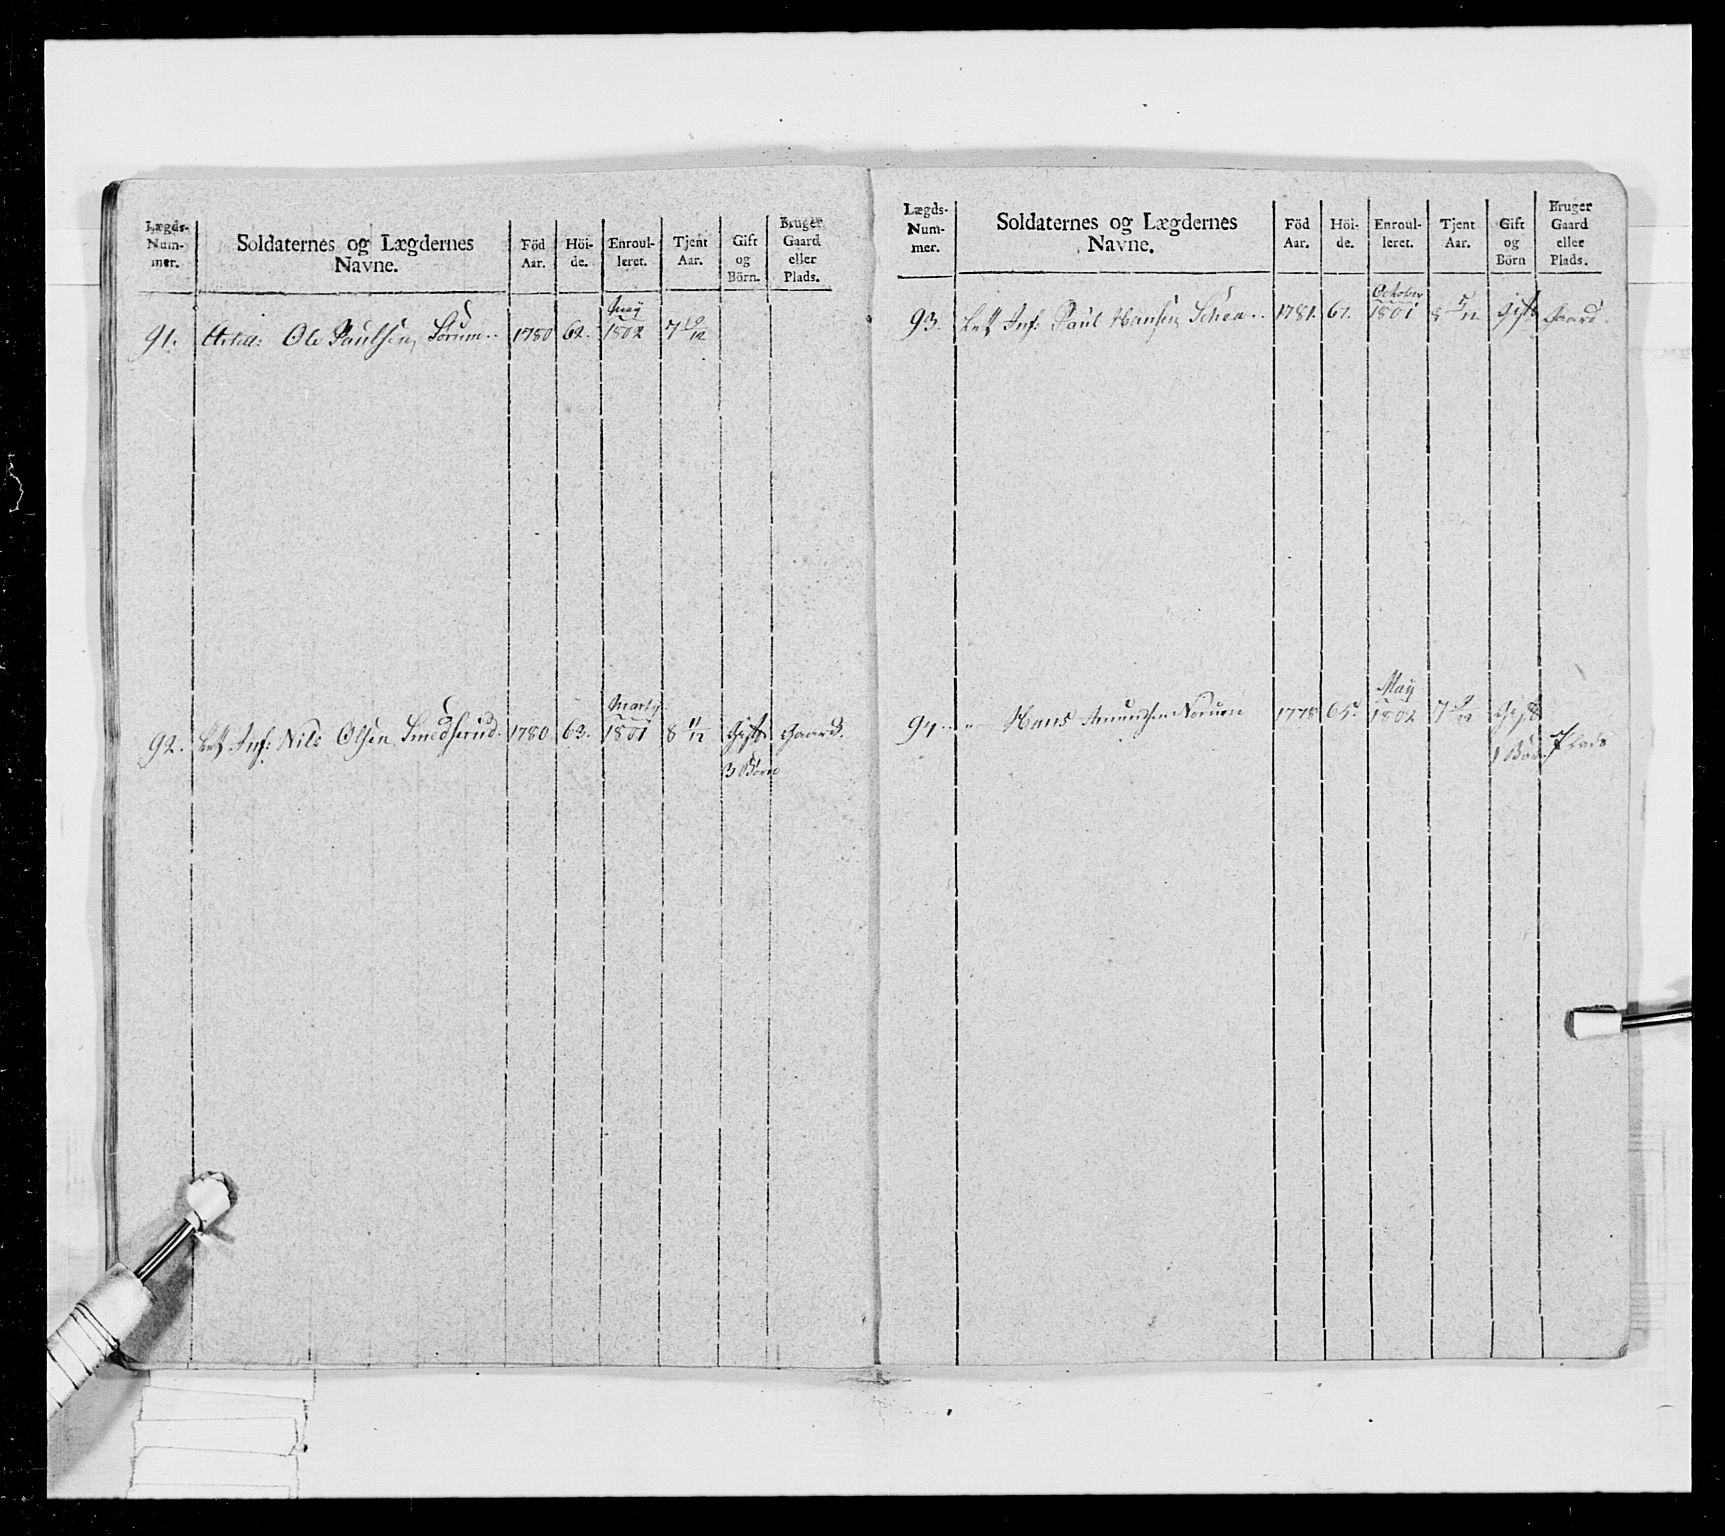 Lægds-
Num-
mer.
Soldaternes og Lægdernes
Navne.
Föd
Aar.
Höi-
de.
Enroul-
leret.
Tjent
Aar.
Gift
og
Börn.
Bruger
Gaard
eller
Plads.
May
91. Artill: Ole Paulsen Sorum 1780 62. 1802 7
Marty
92. Let Inf: Nils Olsen Smedsrud. 1780 63. 1801 8 11/12 Gift Gaard.
3 Börn
Lægds-
Num-
mer.
Soldaternes og Lægdernes
Navne.
Föd
Aar.
Höi-
de.
Enroul-
leret.
Tjent
Aar.
Gift
og
Börn
Bruger
Gaard
eller
Plads.
October
93. Let Inf: Paul Hansen 1781. 61. 1801 8 Gift Gaard
May
94. " Hans Amundsen 1778 1802 7 Gift
1 Börn Plads